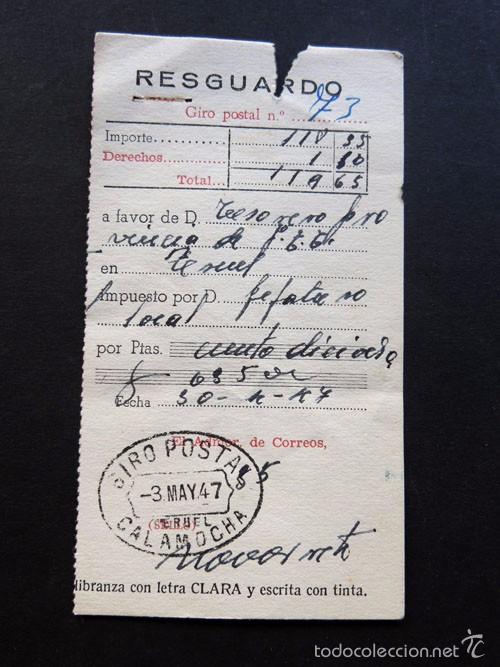 RESGUARDO
Giro postal n.º 73
Importe 118 35
Derechos 1 30
Total 119 65
a favor de D. Tesorero Pro
vincia de
en Teruel
Impuesto por D. Jefatura
local
por Ptas. ciento dieciocho
Fecha 30-4-47
El Admor. de Correos,
GIRO POSTAL
-3.MAY.47
TERUEL
CALAMOCHA
libranza con letra CLARA y escrita con tinta.
todocoleccion.net